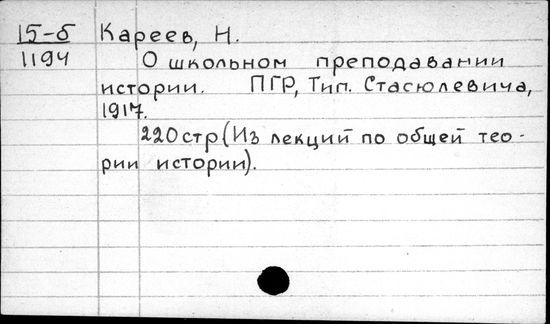 15-б Кареев, Н.
1194 О школьном преподавании
истории. ПГР, Тип. Стасюлевича,
1917.
220 стр (Из лекций по общей тео-
рии истории).